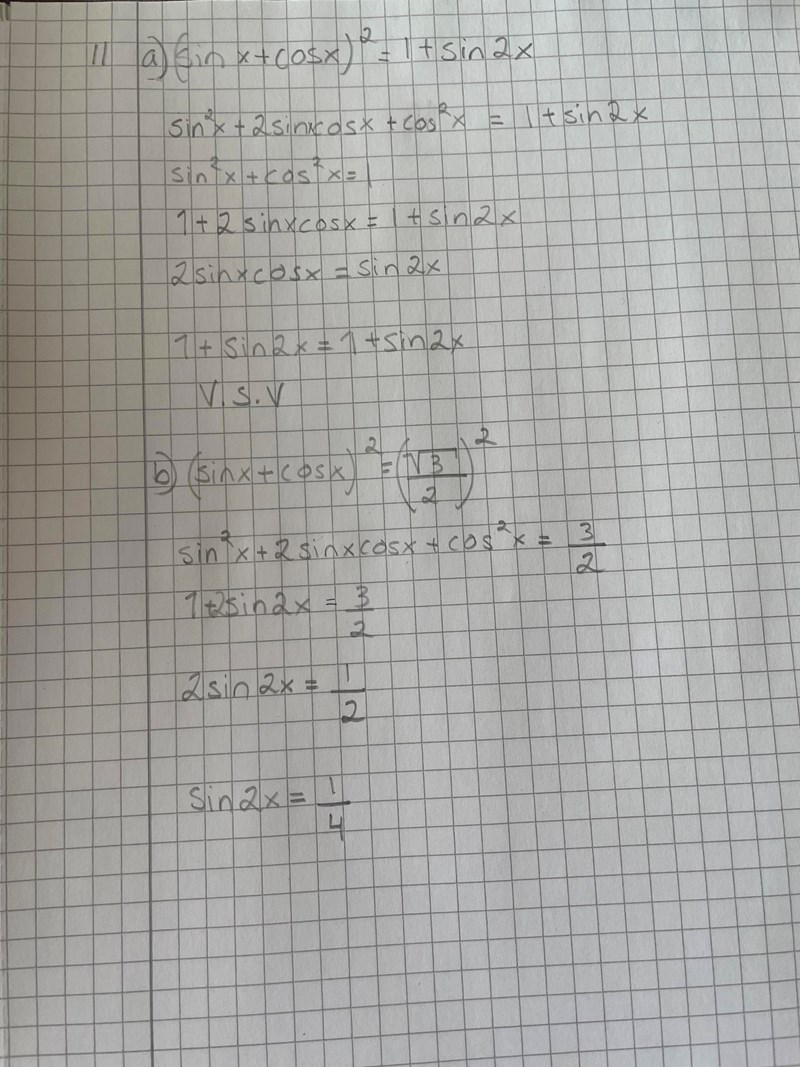 11 a) (sin x+cosx)² = 1+sin2x
sin²x+2sinxcosx+cos²x = 1+sin2x
sin²x+cos²x=1
1+2sinxcosx=1+sin2x
2sinxcosx=sin2x
1+sin2x=1+sin2x
V.S.V
b) (sinx+cosx)² = (√3/2)²
sin²x+2sinxcosx+cos²x = 3/2
1+2sin2x = 3/2
2sin2x = 1/2
sin2x = 1/4